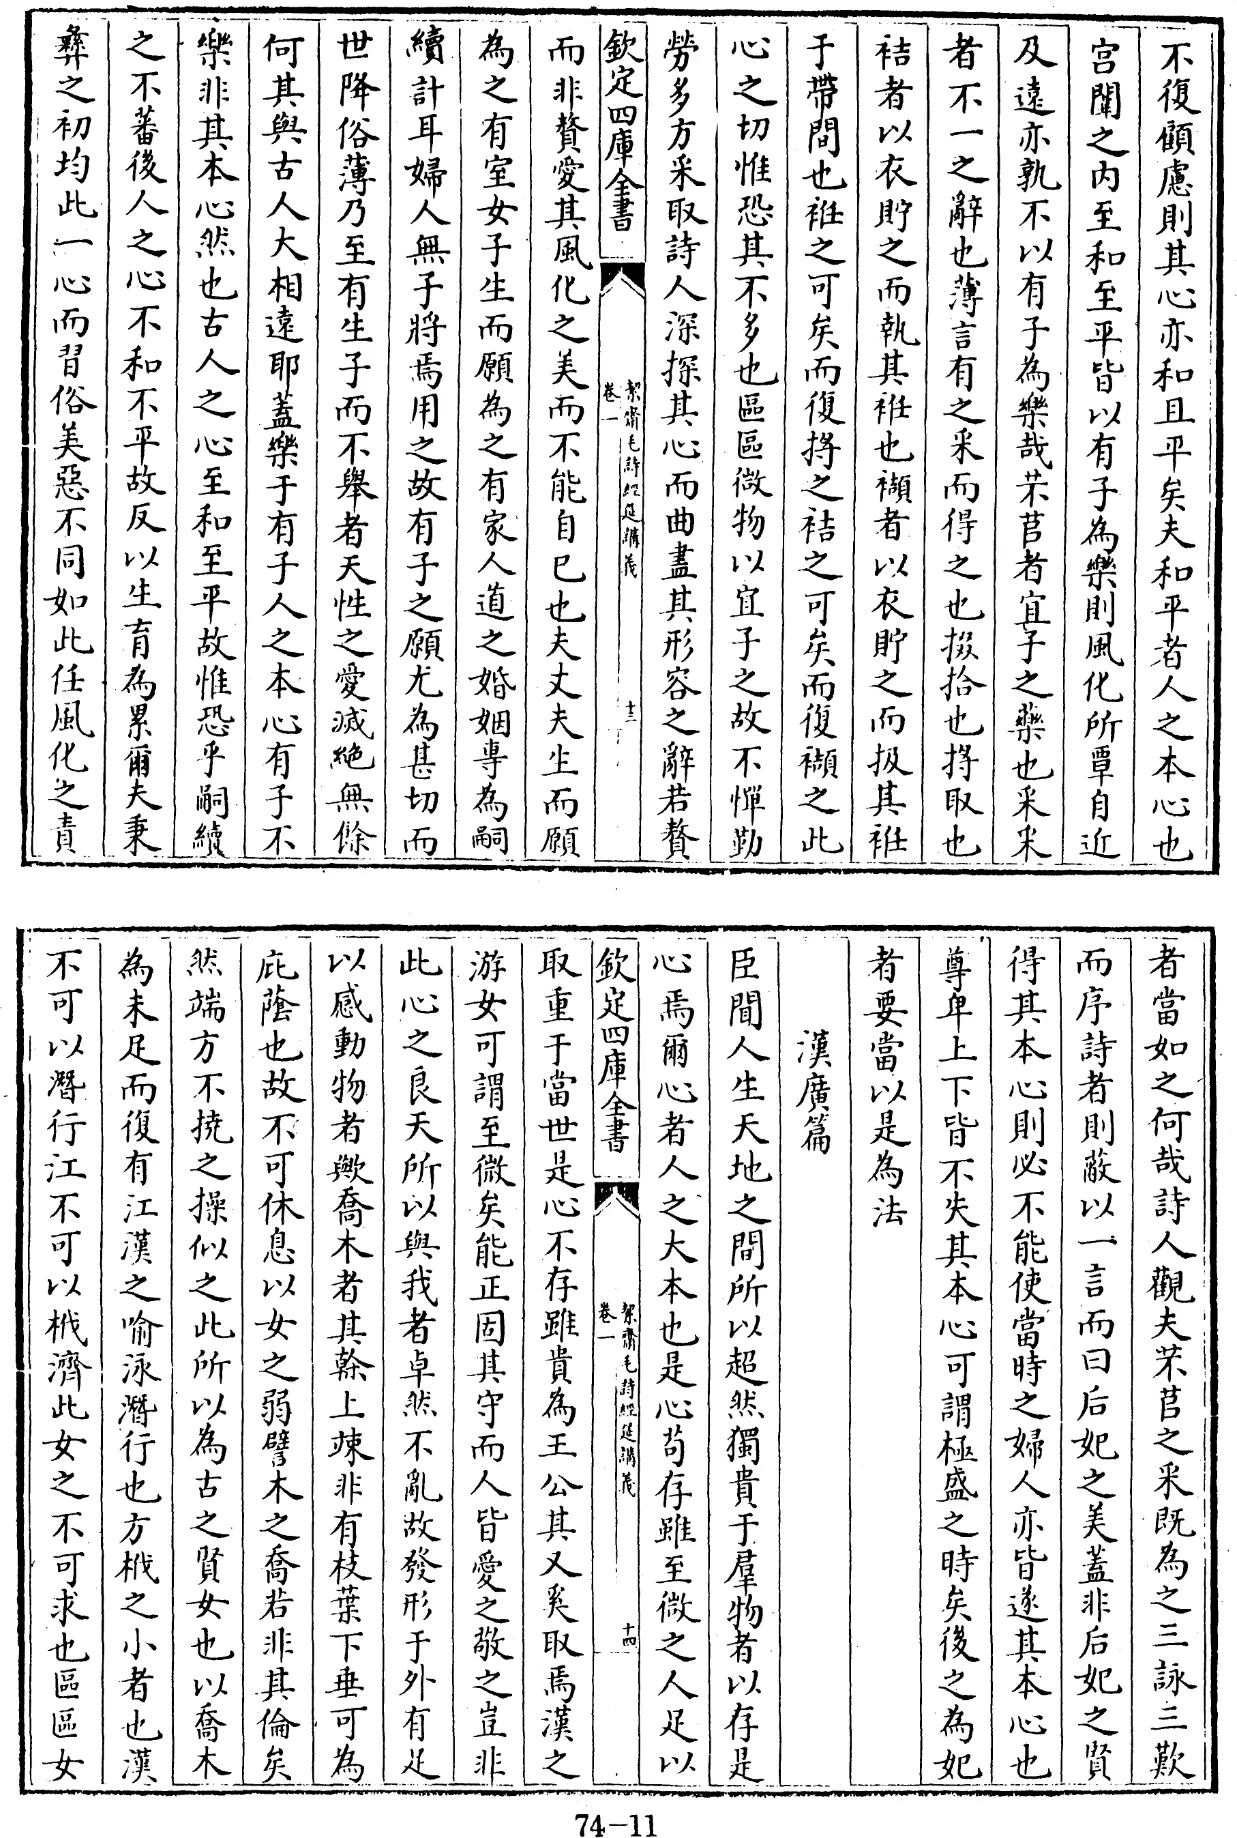 不復顧慮則其心亦和且平矣夫和平者人之本心也
宫闈之内至和至平皆以有子為樂則風化所覃自近
及遠亦孰不以有子為樂哉芣苢者宜子之藥也采采
者不一之辭也薄言有之采而得之也掇拾也捋取也
袺者以衣貯之而執其袵也襭者以衣貯之而扱其袵
于帶間也袵之可矣而復捋之袺之可矣而復襭之此
心之切惟恐其不多也區區微物以宜子之故不憚勤
勞多方采取詩人深探其心而曲盡其形容之辭若贅
欽定四庫全書
絜齋毛詩經筵講義
卷一
十三
而非贅愛其風化之美而不能自已也夫丈夫生而願
為之有室女子生而願為之有家人道之婚姻專為嗣
續計耳婦人無子將焉用之故有子之願尤為甚切而
世降俗薄乃至有生子而不舉者天性之愛滅絶無餘
何其與古人大相遠耶蓋樂于有子人之本心有子不
樂非其本心然也古人之心至和至平故惟恐乎嗣續
之不蕃後人之心不和不平故反以生育為累爾夫秉
彝之初均此一心而習俗美惡不同如此任風化之責
者當如之何哉詩人觀夫芣苢之采既為之三詠三歎
而序詩者則蔽以一言而曰后妃之美蓋非后妃之賢
得其本心則必不能使當時之婦人亦皆遂其本心也
尊卑上下皆不失其本心可謂極盛之時矣後之為妃
者要當以是為法
漢廣篇
臣聞人生天地之間所以超然獨貴于羣物者以存是
心焉爾心者人之大本也是心苟存雖至微之人足以
欽定四庫全書
絜齋毛詩經筵講義
卷一
十四
取重于當世是心不存雖貴為王公其又奚取焉漢之
游女可謂至微矣能正固其守而人皆愛之敬之豈非
此心之良天所以與我者卓然不亂故發形于外有足
以感動物者歟喬木者其榦上疎非有枝葉下垂可為
庇蔭也故不可休息以女之弱譬木之喬若非其倫矣
然端方不撓之操似之此所以為古之賢女也以喬木
為未足而復有江漢之喻泳潛行也方栰之小者也漢
不可以潛行江不可以栰濟此女之不可求也區區女
74-11